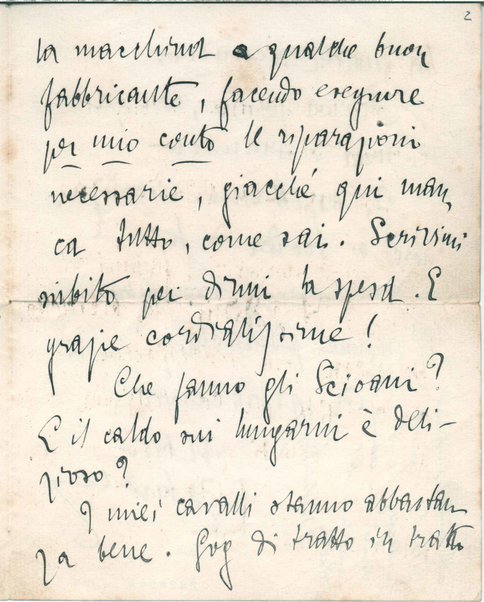 2
la macchina a qualche buon
fabbricante, facendo eseguire
per mio conto le riparazioni
necessarie, giacché qui man-
ca tutto, come sai. Scrivimi
subito per dirmi la spesa. E
grazie cordialissime!
Che fanno gli Scioani?
E il caldo sui lungarni è deli-
zioso?
I miei cavalli stanno abbastan
za bene. Gog di tratto in tratto